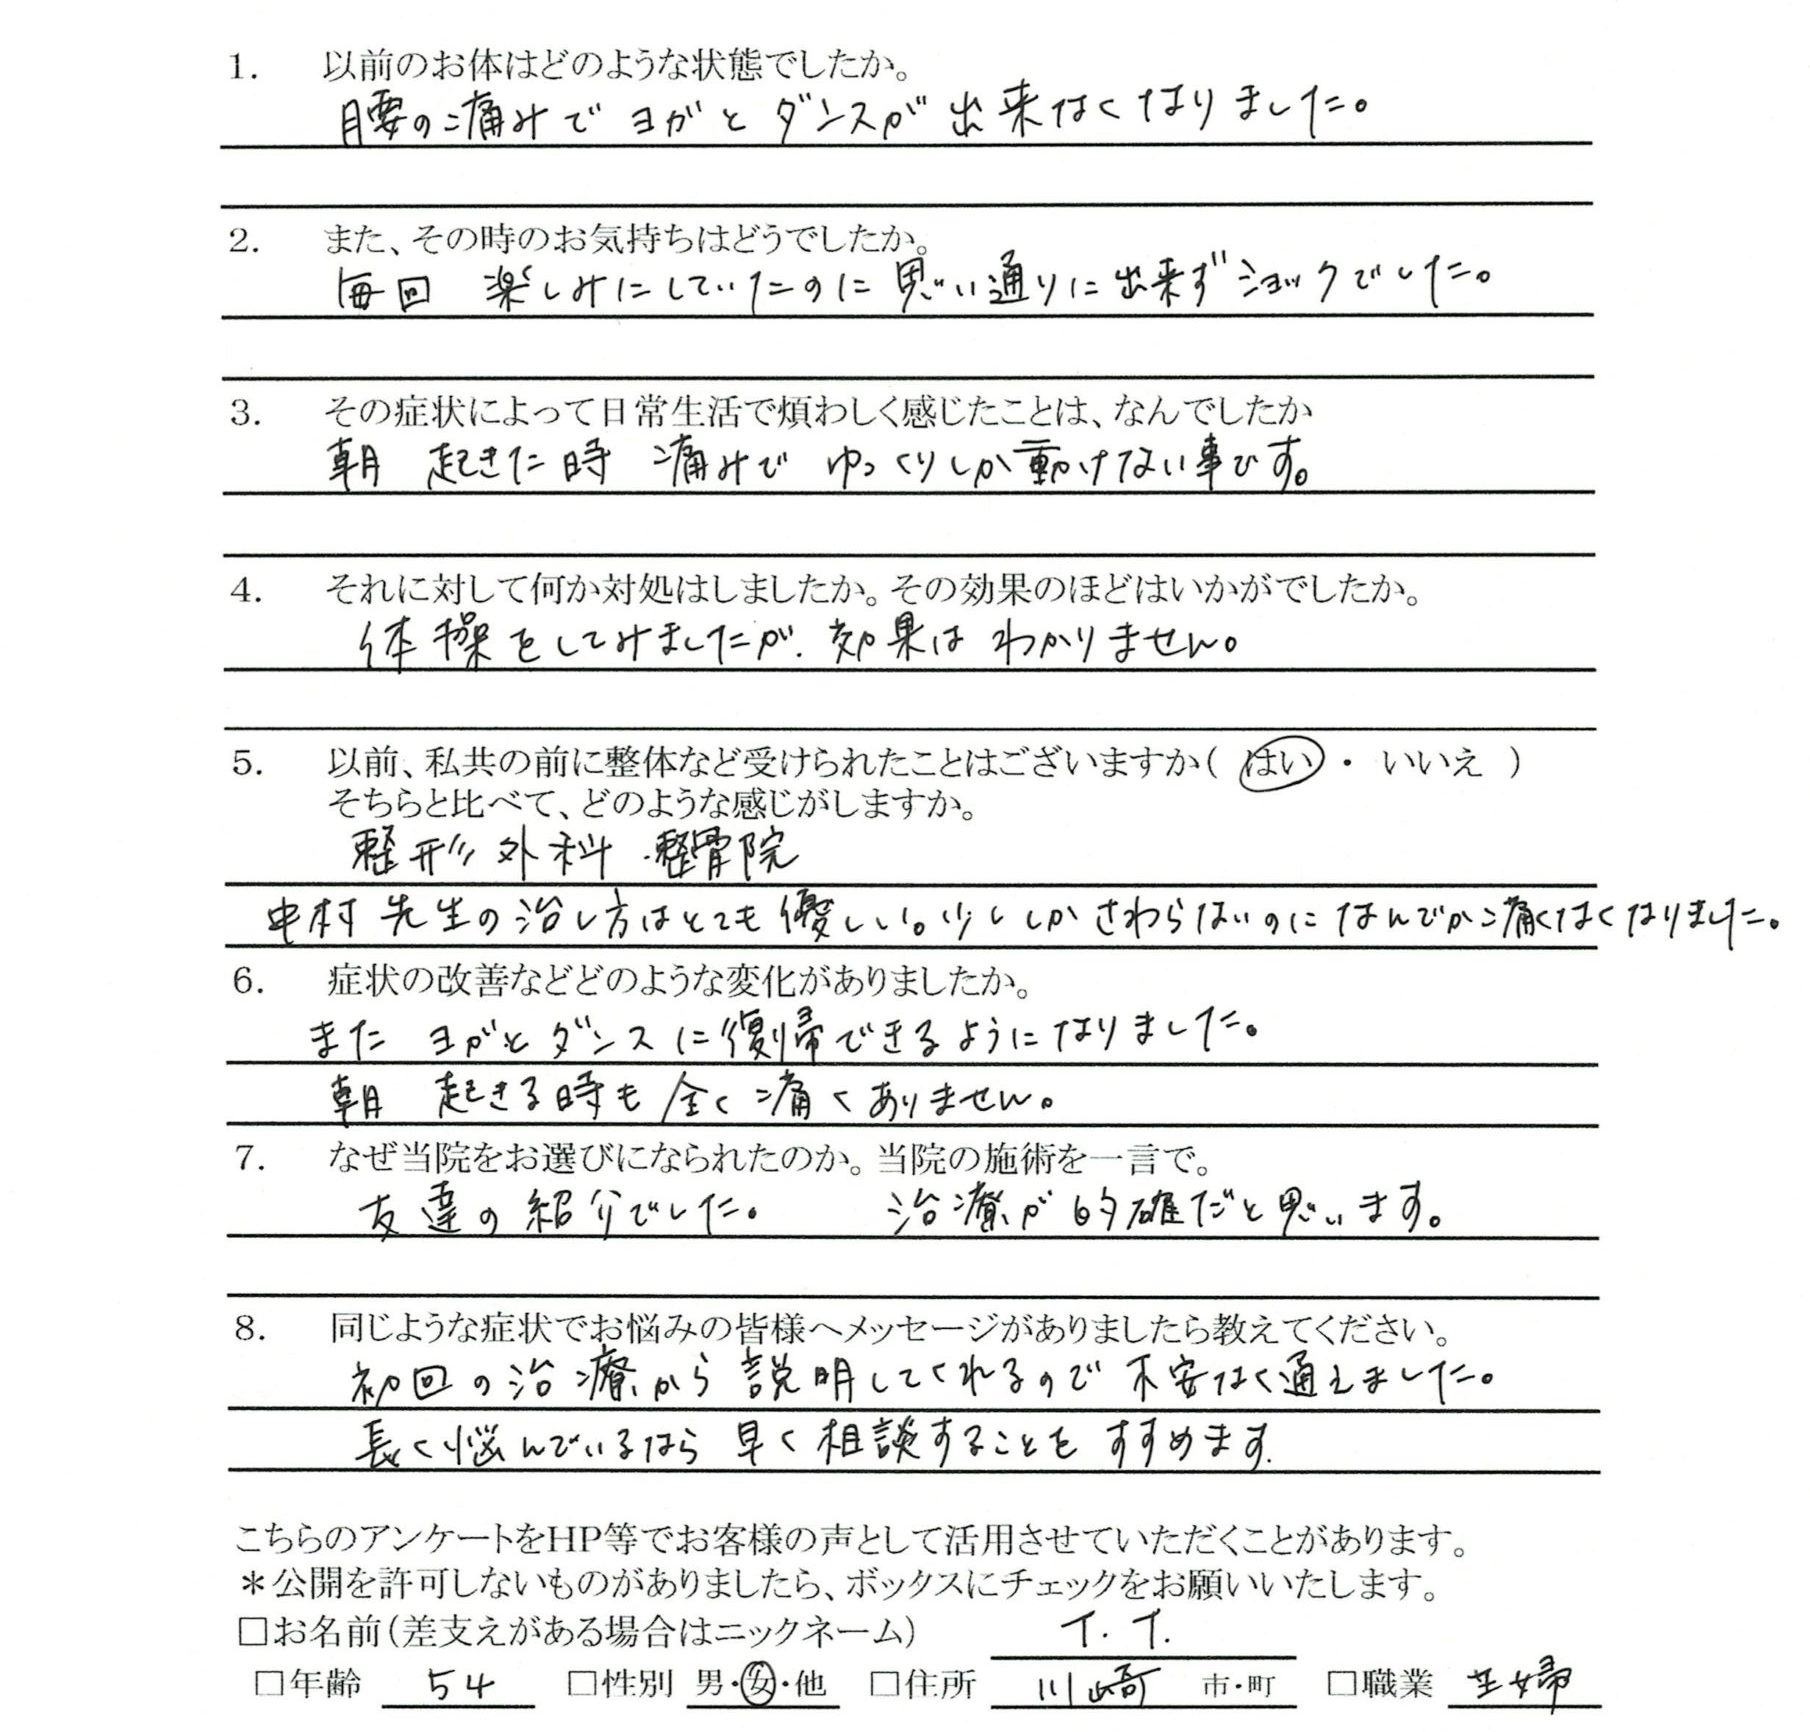 1. 以前のお体はどのような状態でしたか。
腰の痛みで ヨガと ダンスが 出来なくなりました。
2. また、その時のお気持ちはどうでしたか。
毎回 楽しみにしていたのに 思い通りに出来ず ショックでした。
3. その症状によって日常生活で煩わしく感じたことは、なんでしたか
朝 起きた時 痛みで ゆっくりしか動けない事です。
4. それに対して何か対処はしましたか。その効果のほどはいかがでしたか。
体操をしてみましたが、効果は わかりません。
5. 以前、私共の前に整体など受けられたことはございますか( はい ・ いいえ )
そちらと比べて、どのような感じがしますか。
整形外科 . 整骨院
中村先生の治し方はとても優しい。少ししか さわらないのに なんでか痛くなくなりました。
6. 症状の改善などどのような変化がありましたか。
また ヨガと ダンスに復帰できるようになりました。
朝 起きる時も 全く痛くありません。
7. なぜ当院をお選びになられたのか。当院の施術を一言で。
友達の紹介でした。 治療が的確だと思います。
8. 同じような症状でお悩みの皆様へメッセージがありましたら教えてください。
初回の治療から 説明してくれるので 不安なく通えました。
長く悩んでいるなら 早く相談することを すすめます.
こちらのアンケートをHP等でお客様の声として活用させていただくことがあります。
*公開を許可しないものがありましたら、ボックスにチェックをお願いいたします。
□お名前(差支えがある場合はニックネーム) T. T.
□年齢 54 □性別 男・女・他 □住所 川崎 市・町 □職業 主婦